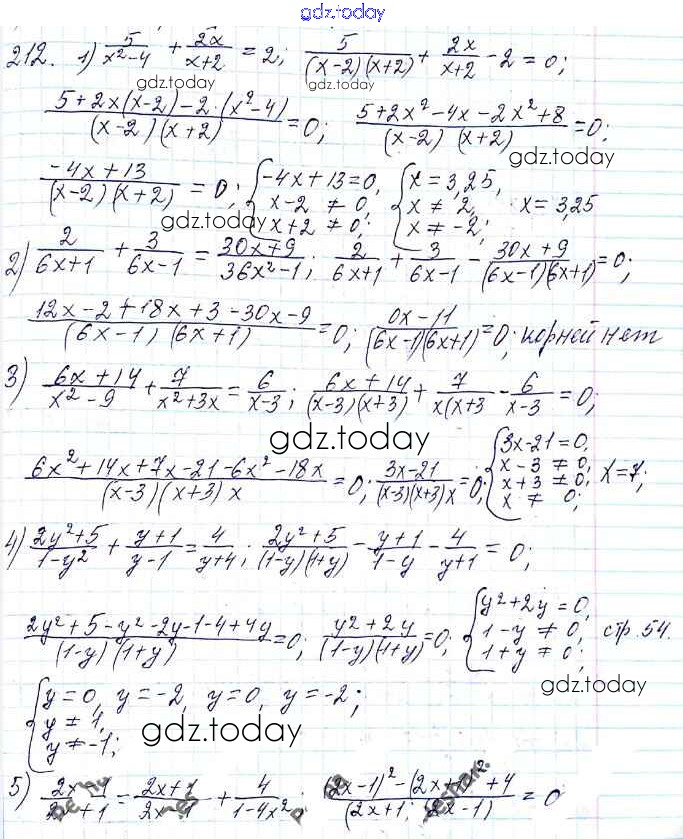 gdz.today
212. 1) 5/(x²-4) + 2x/(x+2) = 2; 5/((x-2)(x+2)) + 2x/(x+2) - 2 = 0;
gdz.today
(5+2x(x-2)-2·(x²-4))/((x-2)(x+2)) = 0; (5+2x²-4x-2x²+8)/((x-2)(x+2)) = 0;
gdz.today
(-4x+13)/((x-2)(x+2)) = 0; { -4x+13=0, x-2≠0, x+2≠0; { x=3,25, x≠2, x≠-2; x=3,25
gdz.today
2) 2/(6x+1) + 3/(6x-1) = (30x+9)/(36x²-1); 2/(6x+1) + 3/(6x-1) - (30x+9)/((6x-1)(6x+1)) = 0;
(12x-2+18x+3-30x-9)/((6x-1)(6x+1)) = 0; (0x-11)/((6x-1)(6x+1)) = 0; корней нет
3) (6x+14)/(x²-9) + 7/(x²+3x) = 6/(x-3); (6x+14)/((x-3)(x+3)) + 7/(x(x+3) - 6/(x-3) = 0;
gdz.today
(6x²+14x+7x-21-6x²-18x)/((x-3)(x+3)x) = 0; (3x-21)/((x-3)(x+3)x) = 0; { 3x-21=0, x-3≠0, x+3≠0, x≠0; x=7;
4) (2y²+5)/(1-y²) + (y+1)/(y-1) = 4/(y+4); (2y²+5)/((1-y)(1+y)) - (y+1)/(1-y) - 4/(y+1) = 0;
(2y²+5-y²-2y-1-4+4y)/((1-y)(1+y)) = 0; (y²+2y)/((1-y)(1+y)) = 0; { y²+2y=0, 1-y≠0, 1+y≠0; стр. 54.
gdz.today
{ y=0, y=-2, y≠1, y≠-1; y=0, y=-2;
gdz.today
5) = (2x+1)/ + 4/(1-4x²); = 0